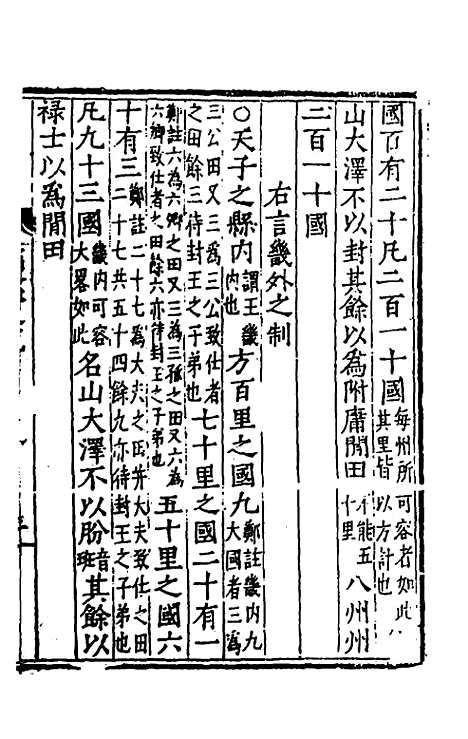 國百有二十凡二百一十國每州所可容者如此八其里皆以方計也
山大澤不以封其餘以為附庸閒田不能五十里八州州
二百一十國
右言畿外之制
○天子之縣內謂王畿內也方百里之國九鄭註畿內九大國者三為
三公田又三為三公致仕者之田餘三待封王之子弟也七十里之國二十有一
鄭註六為六卿之田又三為三孤之田又六為六卿致仕者之田餘六亦待封王之子弟也五十里之國六
十有三鄭註二十七為大夫之田并大夫致仕之田二十七共五十四餘九亦待封王之子弟也
凡九十三國畿內可容大畧如此名山大澤不以朌音班其餘以
祿士以為閒田